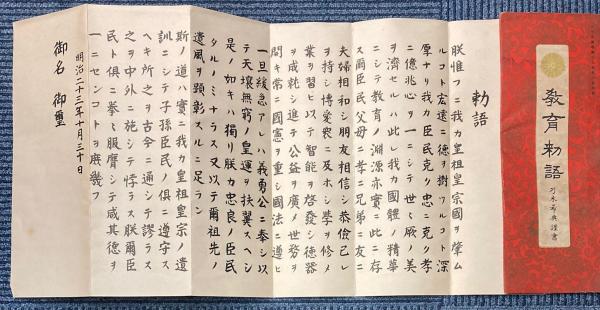 敎育勅語
乃木希典謹書
勅語
朕惟フニ我カ皇祖皇宗國ヲ肇ム
ルコト宏遠ニ德ヲ樹ツルコト深
厚ナリ我カ臣民克ク忠ニ克ク孝
ニ億兆心ヲ一ニシテ世々厥ノ美
ヲ濟セルハ此レ我カ國體ノ精華
ニシテ教育ノ淵源亦實ニ此ニ存
ス爾臣民父母ニ孝ニ兄弟ニ友ニ
夫婦相和シ朋友相信シ恭儉己レ
ヲ持シ博愛衆ニ及ホシ學ヲ修メ
業ヲ習ヒ以テ智能ヲ啓發シ德器
ヲ成就シ進テ公益ヲ廣メ世務ヲ
開キ常ニ國憲ヲ重シ國法ニ遵ヒ
一旦緩急アレハ義勇公ニ奉シ以
テ天壤無窮ノ皇運ヲ扶翼スヘシ
是ノ如キハ獨リ朕カ忠良ノ臣民
タルノミナラス又以テ爾祖先ノ
遺風ヲ顯彰スルニ足ラン
斯ノ道ハ實ニ我カ皇祖皇宗ノ遺
訓ニシテ子孫臣民ノ俱ニ遵守ス
ヘキ所之ヲ古今ニ通シテ謬ラス
之ヲ中外ニ施シテ悖ラス朕爾臣
民ト俱ニ拳々服膺シテ咸其德ヲ
一ニセンコトヲ庶幾フ
明治二十三年十月三十日
御名 御璽